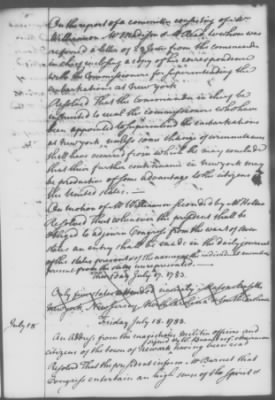 On the report of a committee consisting of Mr
Williamson Mr Madison & Mr Read to whom was
referred a letter of 23 June from the commander
in chief enclosing a copy of his correspondence
with the Commissioners for superintending the
embarkations at new york
Resolved That the Commander in chief be
instructed to recal the Commissioners who have
been appointed to superintend the embarkations
at new york unless some change of circumstances
shall have occurred from which he may conclude
that their further continuance in new york may
be productive of some advantage to the citizens of
the United States.
On motion of Mr Williamson seconded by Mr Holten
Resolved That whenever the president shall be
obliged to adjourn Congress from the want of seven
states an entry shall be made in the daily journal
of the states present or of the names of the individual members
present from the states unrepresented.
Thursday July 17. 1783.
Only five states attended namely Massachusetts
New york, New Jersey, North Carolina & South Carolina
July 18
Friday July 18. 1783.
An Address from the magistrates militia officers and
citizens of the town of Newark having been read
Resolved That the president inform
Congress entertain an high sense of the spirit &